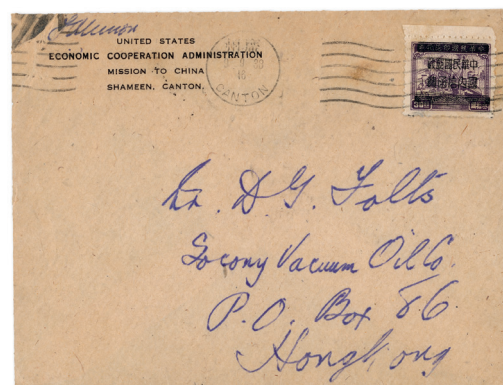 UNITED STATES
ECONOMIC COOPERATION ADMINISTRATION
MISSION TO CHINA
SHAMEEN, CANTON.
CANTON
D G. Folts
Socony Vacuum Oil Co.
P.O. Box 86
Hongkong